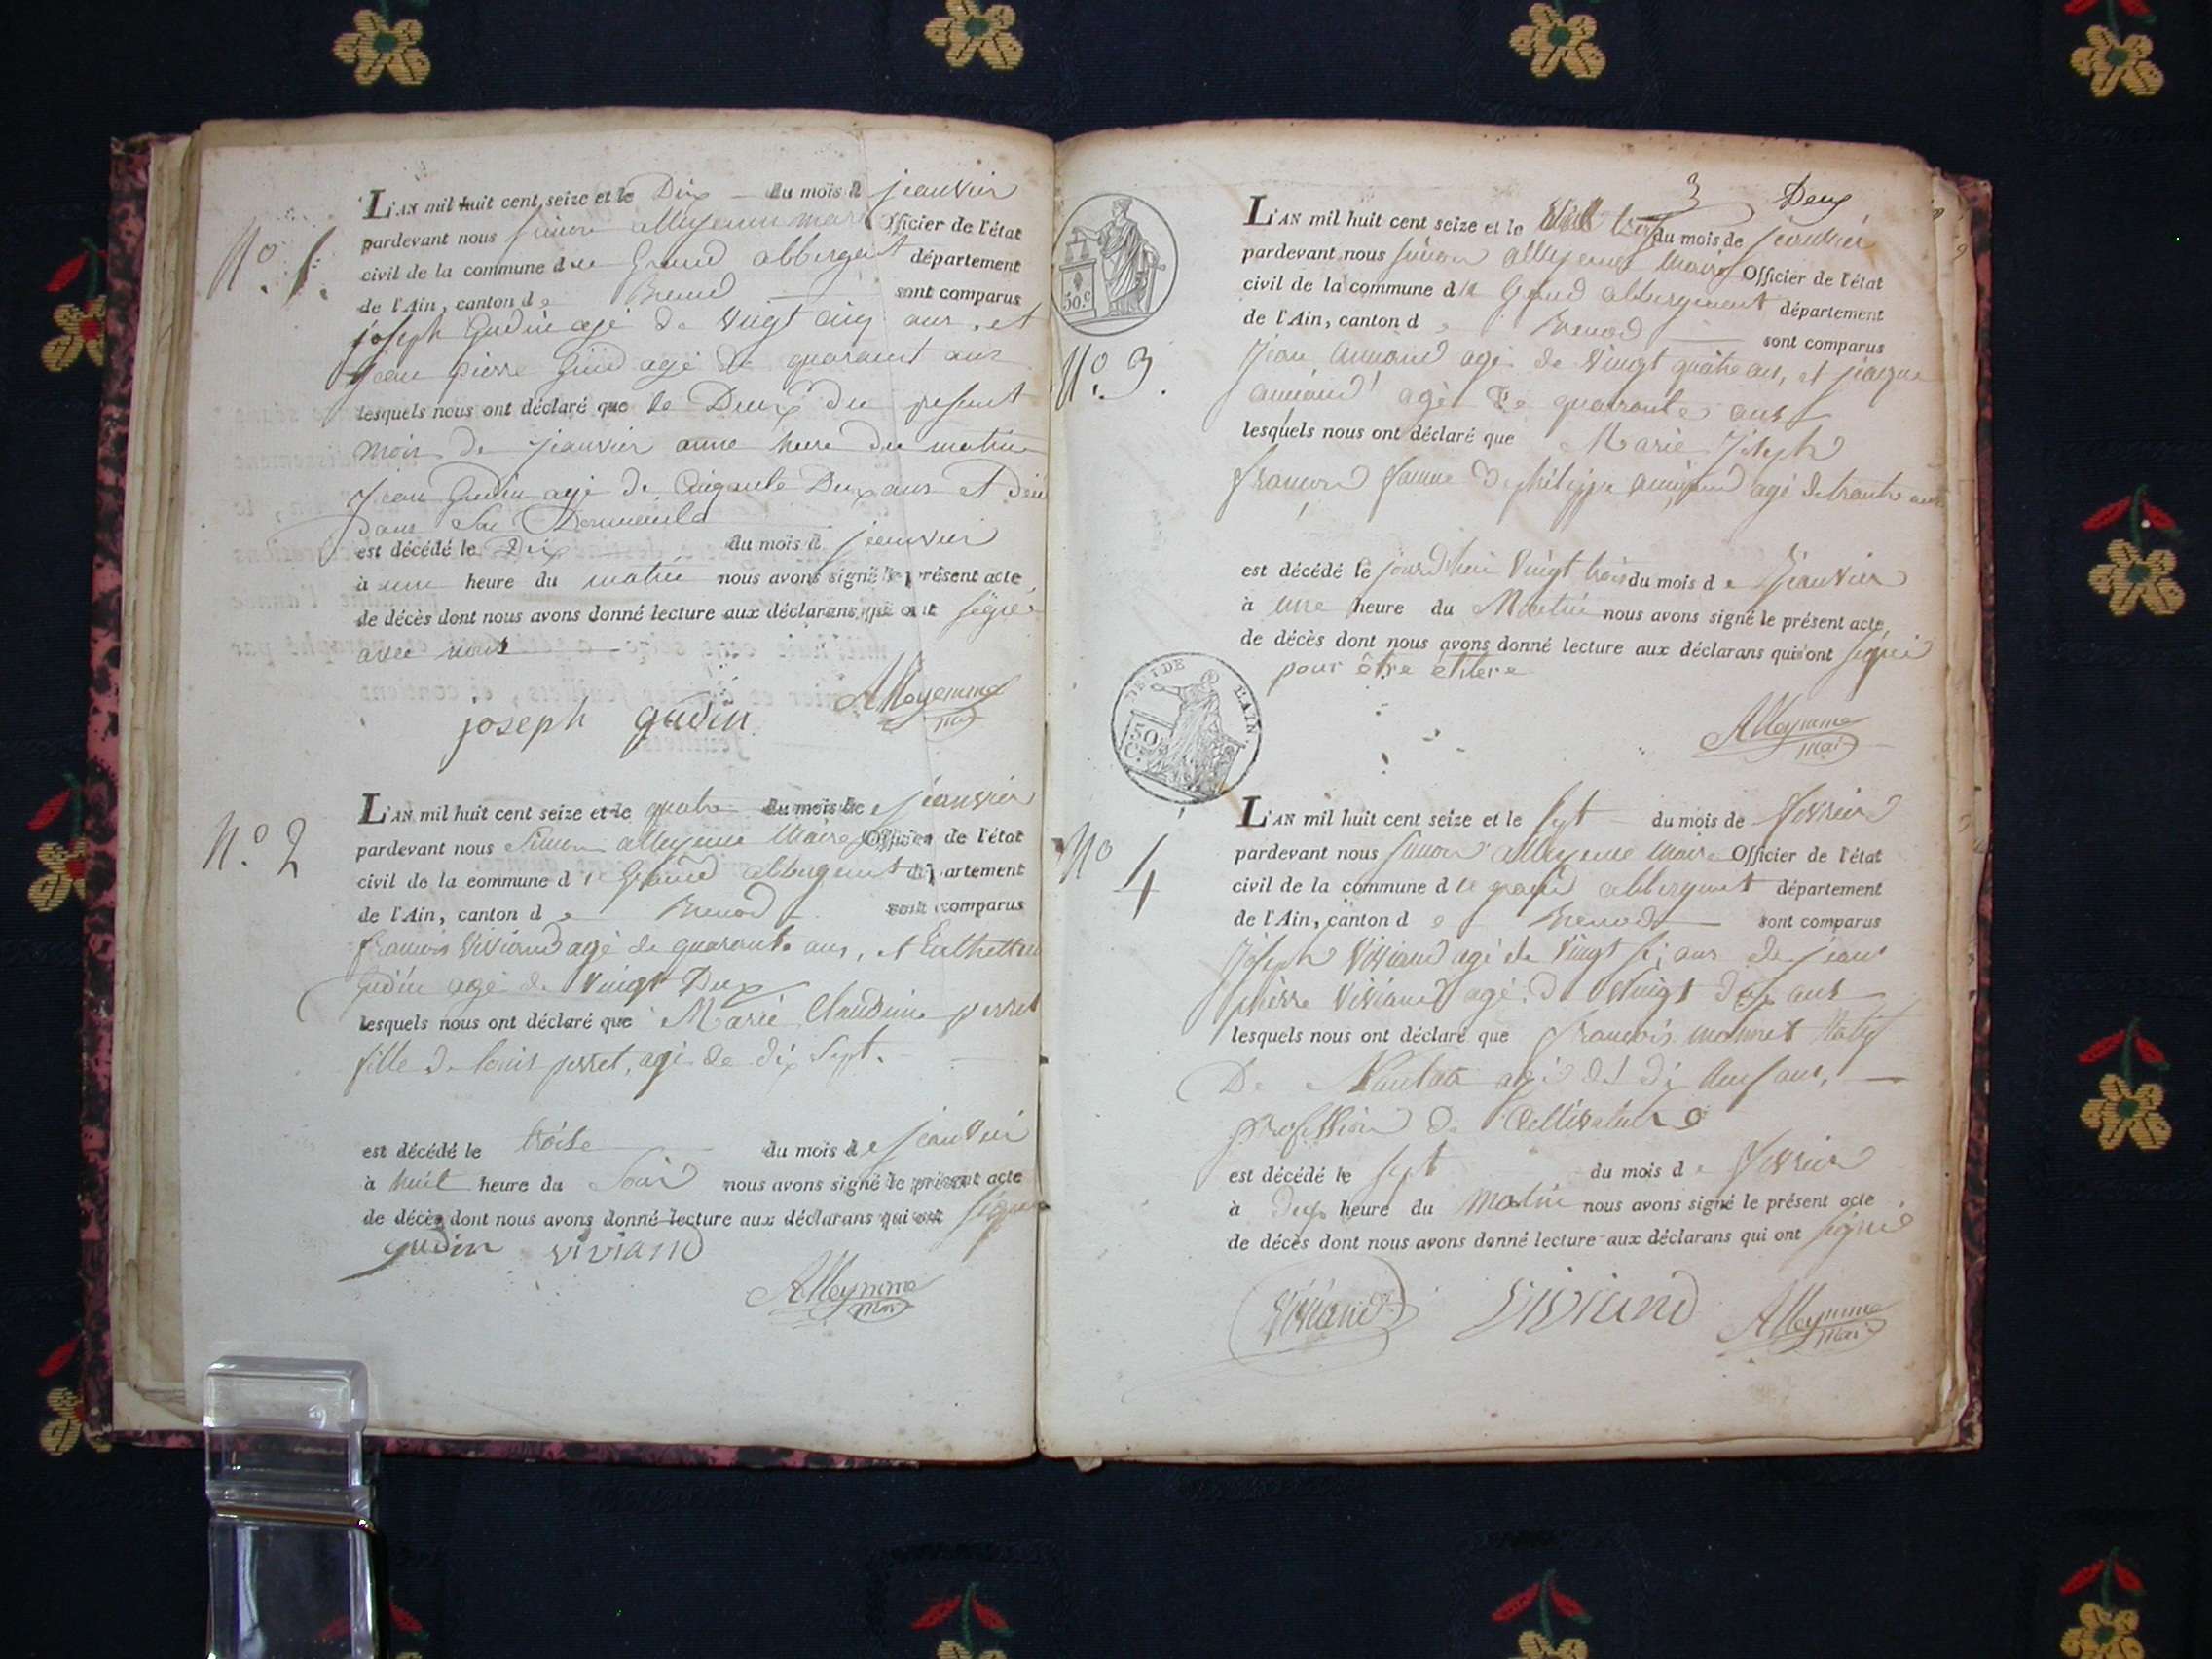 N.º 1.
L'AN mil huit cent seize et le Dix du mois d jeanvier
pardevant nous Simon alleyeme maire Officier de l'état
civil de la commune d u Grand abbergent département
de l'Ain, canton d e Brenod sont comparus
joseph Gudin agé de vingt cinq ans, et
jean pierre Guid agé de quarant ans
lesquels nous ont déclaré que le Deux du present
mois de jeanvier a une heure du matin
jean Gudin agé de Cinquante Deux ans et
dans Son
est décédé le Dix du mois d jeanvier
à une heure du matin nous avons signé le présent acte
de décès dont nous avons donné lecture aux déclarans qui ont signé
avec nous
joseph gudin Alleyemme
mai
N.º 2
L'AN mil huit cent seize et le quatre du mois de jeanvier
pardevant nous Simon alleyeme Maire Officier de l'état
civil de la commune d u Grand abbergent département
de l'Ain, canton d e Brenod sont comparus
francois Viviand agé de quarante ans, et
Gudin agé de Vingt Deux
lesquels nous ont déclaré que Marie Claudine perret
fille de louis perret, agé de dix Sept.
est décédé le troise du mois d e jeanvier
à huit heure du Soir nous avons signé le présent acte
de décès dont nous avons donné lecture aux déclarans qui ont signé
gudin viviand
Alleymme
mai
3 Deux
50.c
N.º 3.
L'AN mil huit cent seize et le trois du mois de jeanvier
pardevant nous Simon alleyeme Maire Officier de l'état
civil de la commune d u Grand abbergement département
de l'Ain, canton d e Brenod sont comparus
Jean agé de Vingt quatre ans, et jacque
agé de quarante ans
lesquels nous ont déclaré que Marie Joseph
famme De philippe agé de trante ans
est décédé le jourdhui Vingt trois du mois d e Jeanvier
à une heure du Matin nous avons signé le présent acte
de décès dont nous avons donné lecture aux déclarans qui ont signé
pour être
DE L'AIN.
50
C.
Alleymme
mai
N.º 4
L'AN mil huit cent seize et le sept du mois de fevrier
pardevant nous Simon alleyeme Maire Officier de l'état
civil de la commune d u grand abbergment département
de l'Ain, canton d e Brenod sont comparus
Joseph Viviand agé de Vingt si ans de jean
pierre Viviand agé de Vingt dix ans
lesquels nous ont déclaré que francois monnet Natif
De Nantua agé de di neuf ans,
profession de Cultivateur
est décédé le sept du mois d e fevrier
à deux heure du Matin nous avons signé le présent acte
de décès dont nous avons donné lecture aux déclarans qui ont signé
Viviand Viviand Alleymme
mai